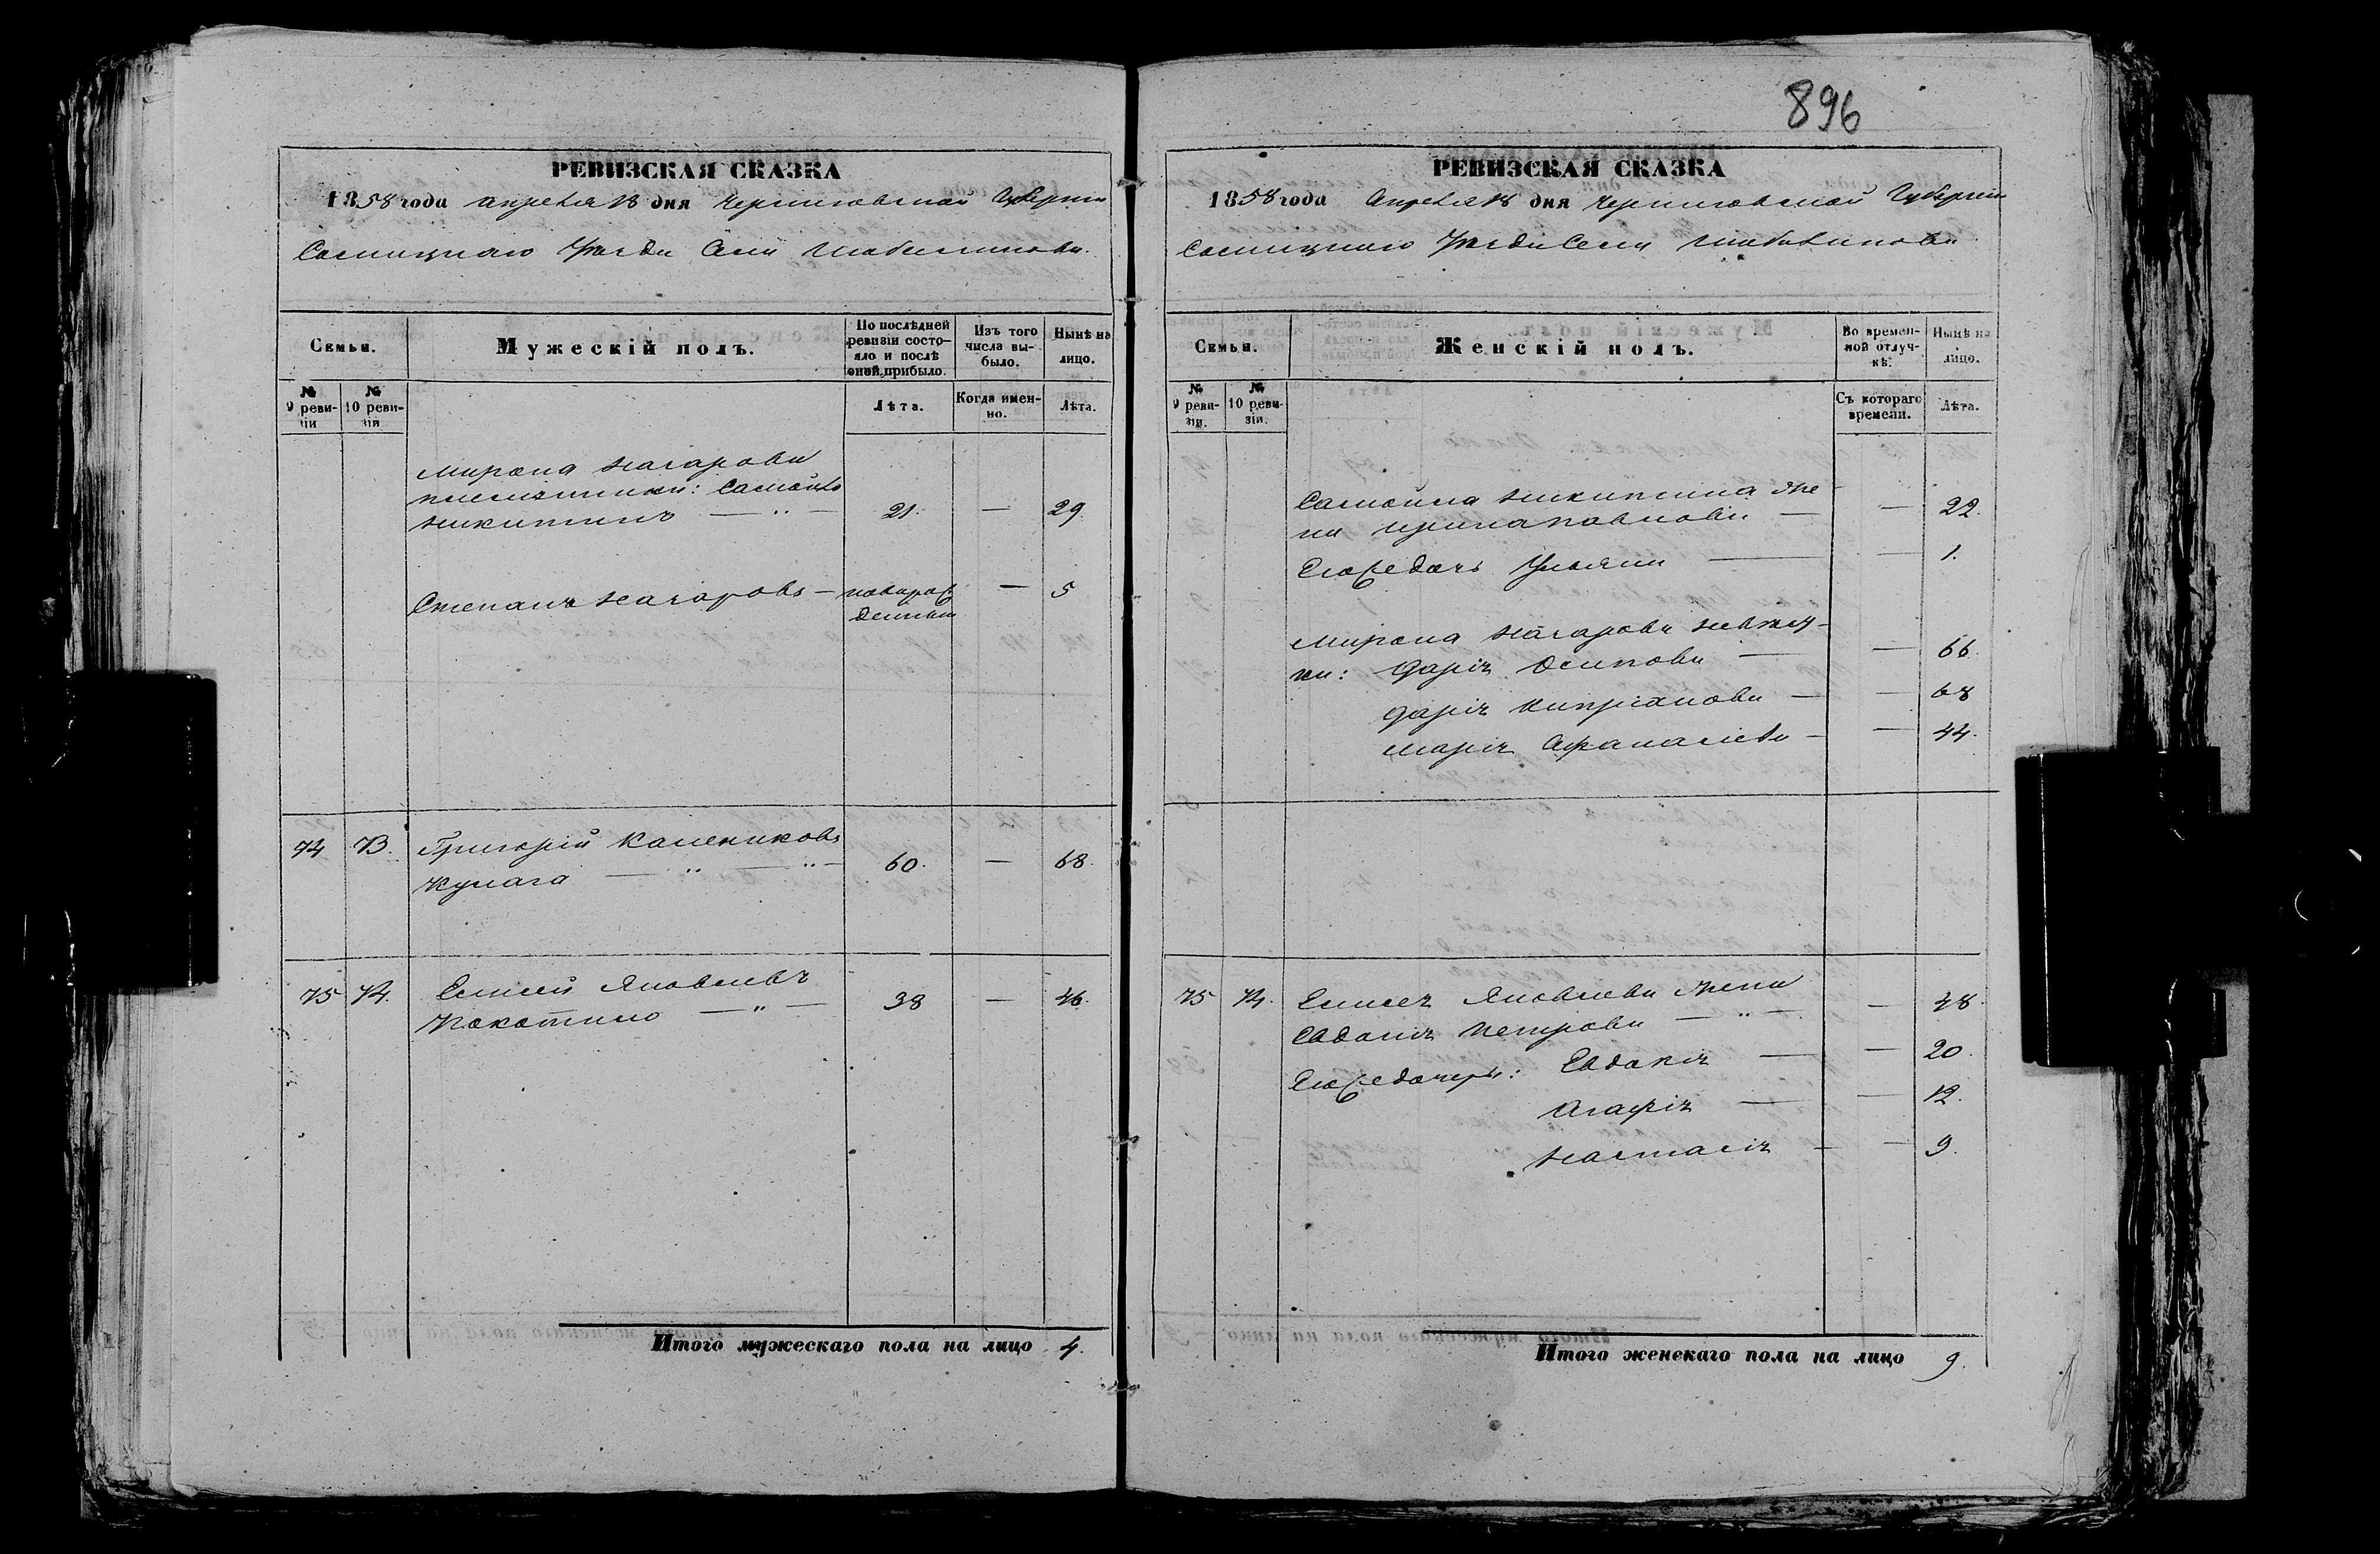 896
РЕВИЗСКАЯ СКАЗКА
1858 года Апреля 18 дня Черниговской Губернии
Сосницкаго Уезда Села Шабалинова
Семьи.
Мужескій полъ.
По послѣдней ревизіи состояло и послѣ оной прибыло.
Изъ того числа выбыло.
Нынѣ на лицо.
№ 9 ревизіи
№ 10 ревизіи
Лѣта.
Когда именно.
Лѣта.
Мирона Назарова
племянники: Самойло
Никитинъ — „ — 21. — 29.
Степанъ Назаровъ — новорож
денный — 5
74 73. Григорій Калениковъ
Кулага — „ — „ — 60. — 68.
75 74. Елисей Яковлевъ
Покотило — „ — 38 — 46.
Итого мужескаго пола на лицо 4.
РЕВИЗСКАЯ СКАЗКА
1858 года Апреля 18 дня Черниговской Губернии
Сосницкаго Уезда Села Шабалинова
Семьи.
Женскій полъ.
Во временной отлучкѣ.
Нынѣ на лицо.
№ 9 ревизіи.
№ 10 ревизіи.
Съ котораго времени.
Лѣта.
Самойла Никитина же
на Ирина Павлова — — 22.
Его же дочь Ульяна — — 1.
Мирона Назарова
Дарія Осипова — — 66.
Дарія Кипріанова — — 68
Марія Афанасіева — — 44.
75 74. Елисея Яковлева жена
Евдокія Петрова — „ — — 48.
Его же дочери: Евдокія — — 20.
Агафія — — 12.
Настасія — — 9.
Итого женскаго пола на лицо 9.